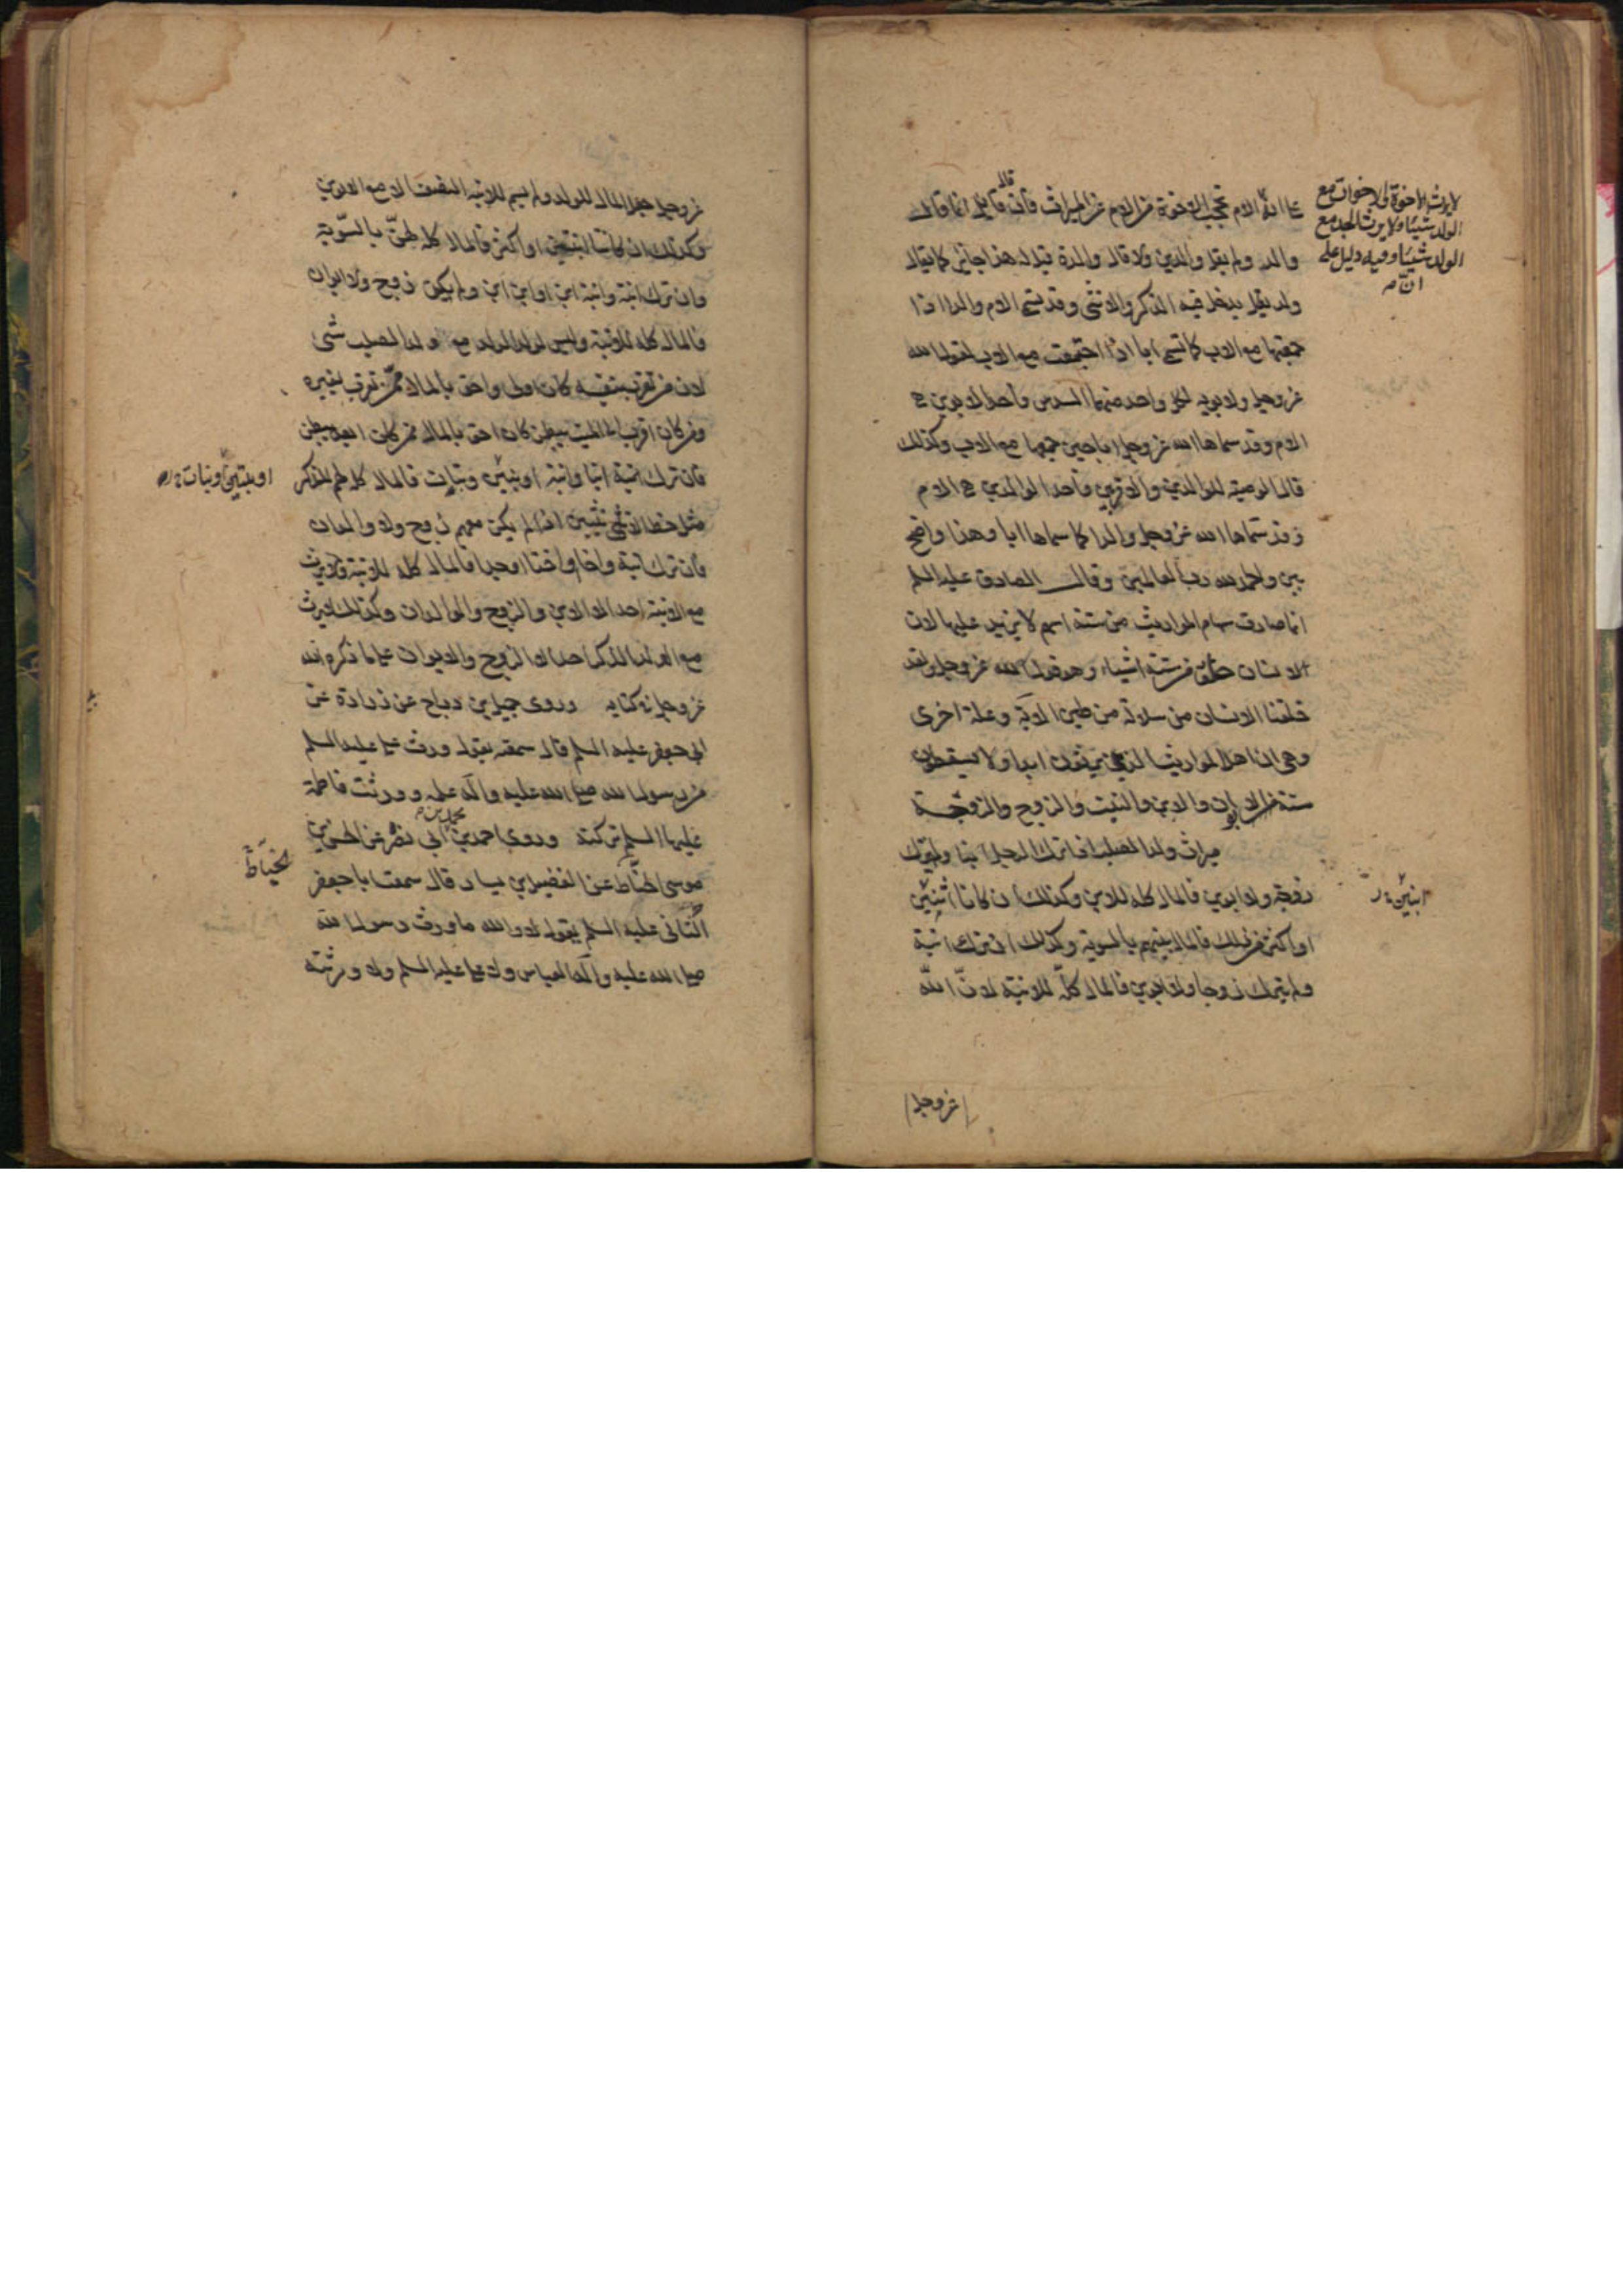 لا يرث الاخوة والاخوات مع
الولد شيئا ولا يرث الجد مع
الولد شيئا وفيه دليل على
ان
على ان الام تحجب الاخوة من الام عن الميراث فان قال قائل انما قال
والد ولم يقل والدين ولا قال والدة قيل له هذا جائز كما يقال
ولد يدخل فيه الذكر والانثى وقد تسمى الام والدا اذا
جمعتها مع الاب كما تسمى ابا اذا اجتمعت مع الاب لقول الله
عز وجل ولابويه لكل واحد منهما السدس فاحد الابوين هي
الام وقد سماها الله عز وجل ابا حين جمعها مع الاب وكذلك
قال الوصية للوالدين والاقربين فاحد الوالدين هي الام
وقد سماها الله عز وجل والدا كما سماها ابا وهذا واضح
بين والحمد لله رب العالمين وقال الصادق عليه السلم
انما صارت سهام المواريث من ستة اسهم لا يزيد عليها لان
الانسان خلق من ستة اشياء وهو قول الله عز وجل ولقد
خلقنا الانسان من سلالة من طين الاية وعلة اخرى
وهي ان اهل المواريث الذين يرثون ابدا ولا يسقطون
ستة الابوان والابن والبنت والزوج والزوجة
ميراث ولد الصلب اذا ترك الرجل ابنا ولم يترك
زوجة ولا ابوين فالمال كله للابن وكذلك ان كانا اثنين
ابنين
او اكثر من ذلك فالمال بينهم بالسوية وكذلك ان ترك ابنة
ولم يترك زوجا ولا ابوين فالمال كله للابنة لان الله
عز وجل
عز وجل جعل المال للولد ولم يسم للابنة النصف الا مع الابوين
وكذلك ان كانتا اثنتين او اكثر فالمال كله لهن بالسوية
وان ترك ابنة وابنة ابن او ابن ابن ولم يكن زوج ولا ابوان
فالمال كله للابنة وليس لولد الولد مع ولد الصلب شئ
لان من تقرب بنفسه كان اولى واحق بالمال ممن تقرب بغيره
ومن كان اقرب الى الميت ببطن كان احق بالمال ممن كان ابعد ببطن
فان ترك ابنا وابنة او بنين وبنات فالمال كله لهم للذكر
او بنتين وبنات
مثل حظ الانثيين اذا لم يكن معهم زوج ولا والدان
فان ترك ابنة واخا واختا وجدا فالمال كله للابنة ولا يرث
مع الابنة احد الا الابن والزوج والوالدان وكذلك لا يرث
مع الولد الذكر احد الا الزوج والابوان على ما ذكره الله
عز وجل في كتابه وروى جميل بن دراج عن زرارة عن
ابي جعفر عليه السلم قال سمعته يقول ورث علي عليه السلم
من رسول الله صلى الله عليه واله علمه وورثت فاطمة
عليها السلم تركته وروى احمد بن محمد بن ابي نصر عن الحسن بن
موسى الحناط عن الفضيل بن يسار قال سمعت ابا جعفر
الخياط
عليه السلم يقول لا والله ما ورث رسول الله
صلى الله عليه واله العباس ولا علي عليه السلم ولا ورثته